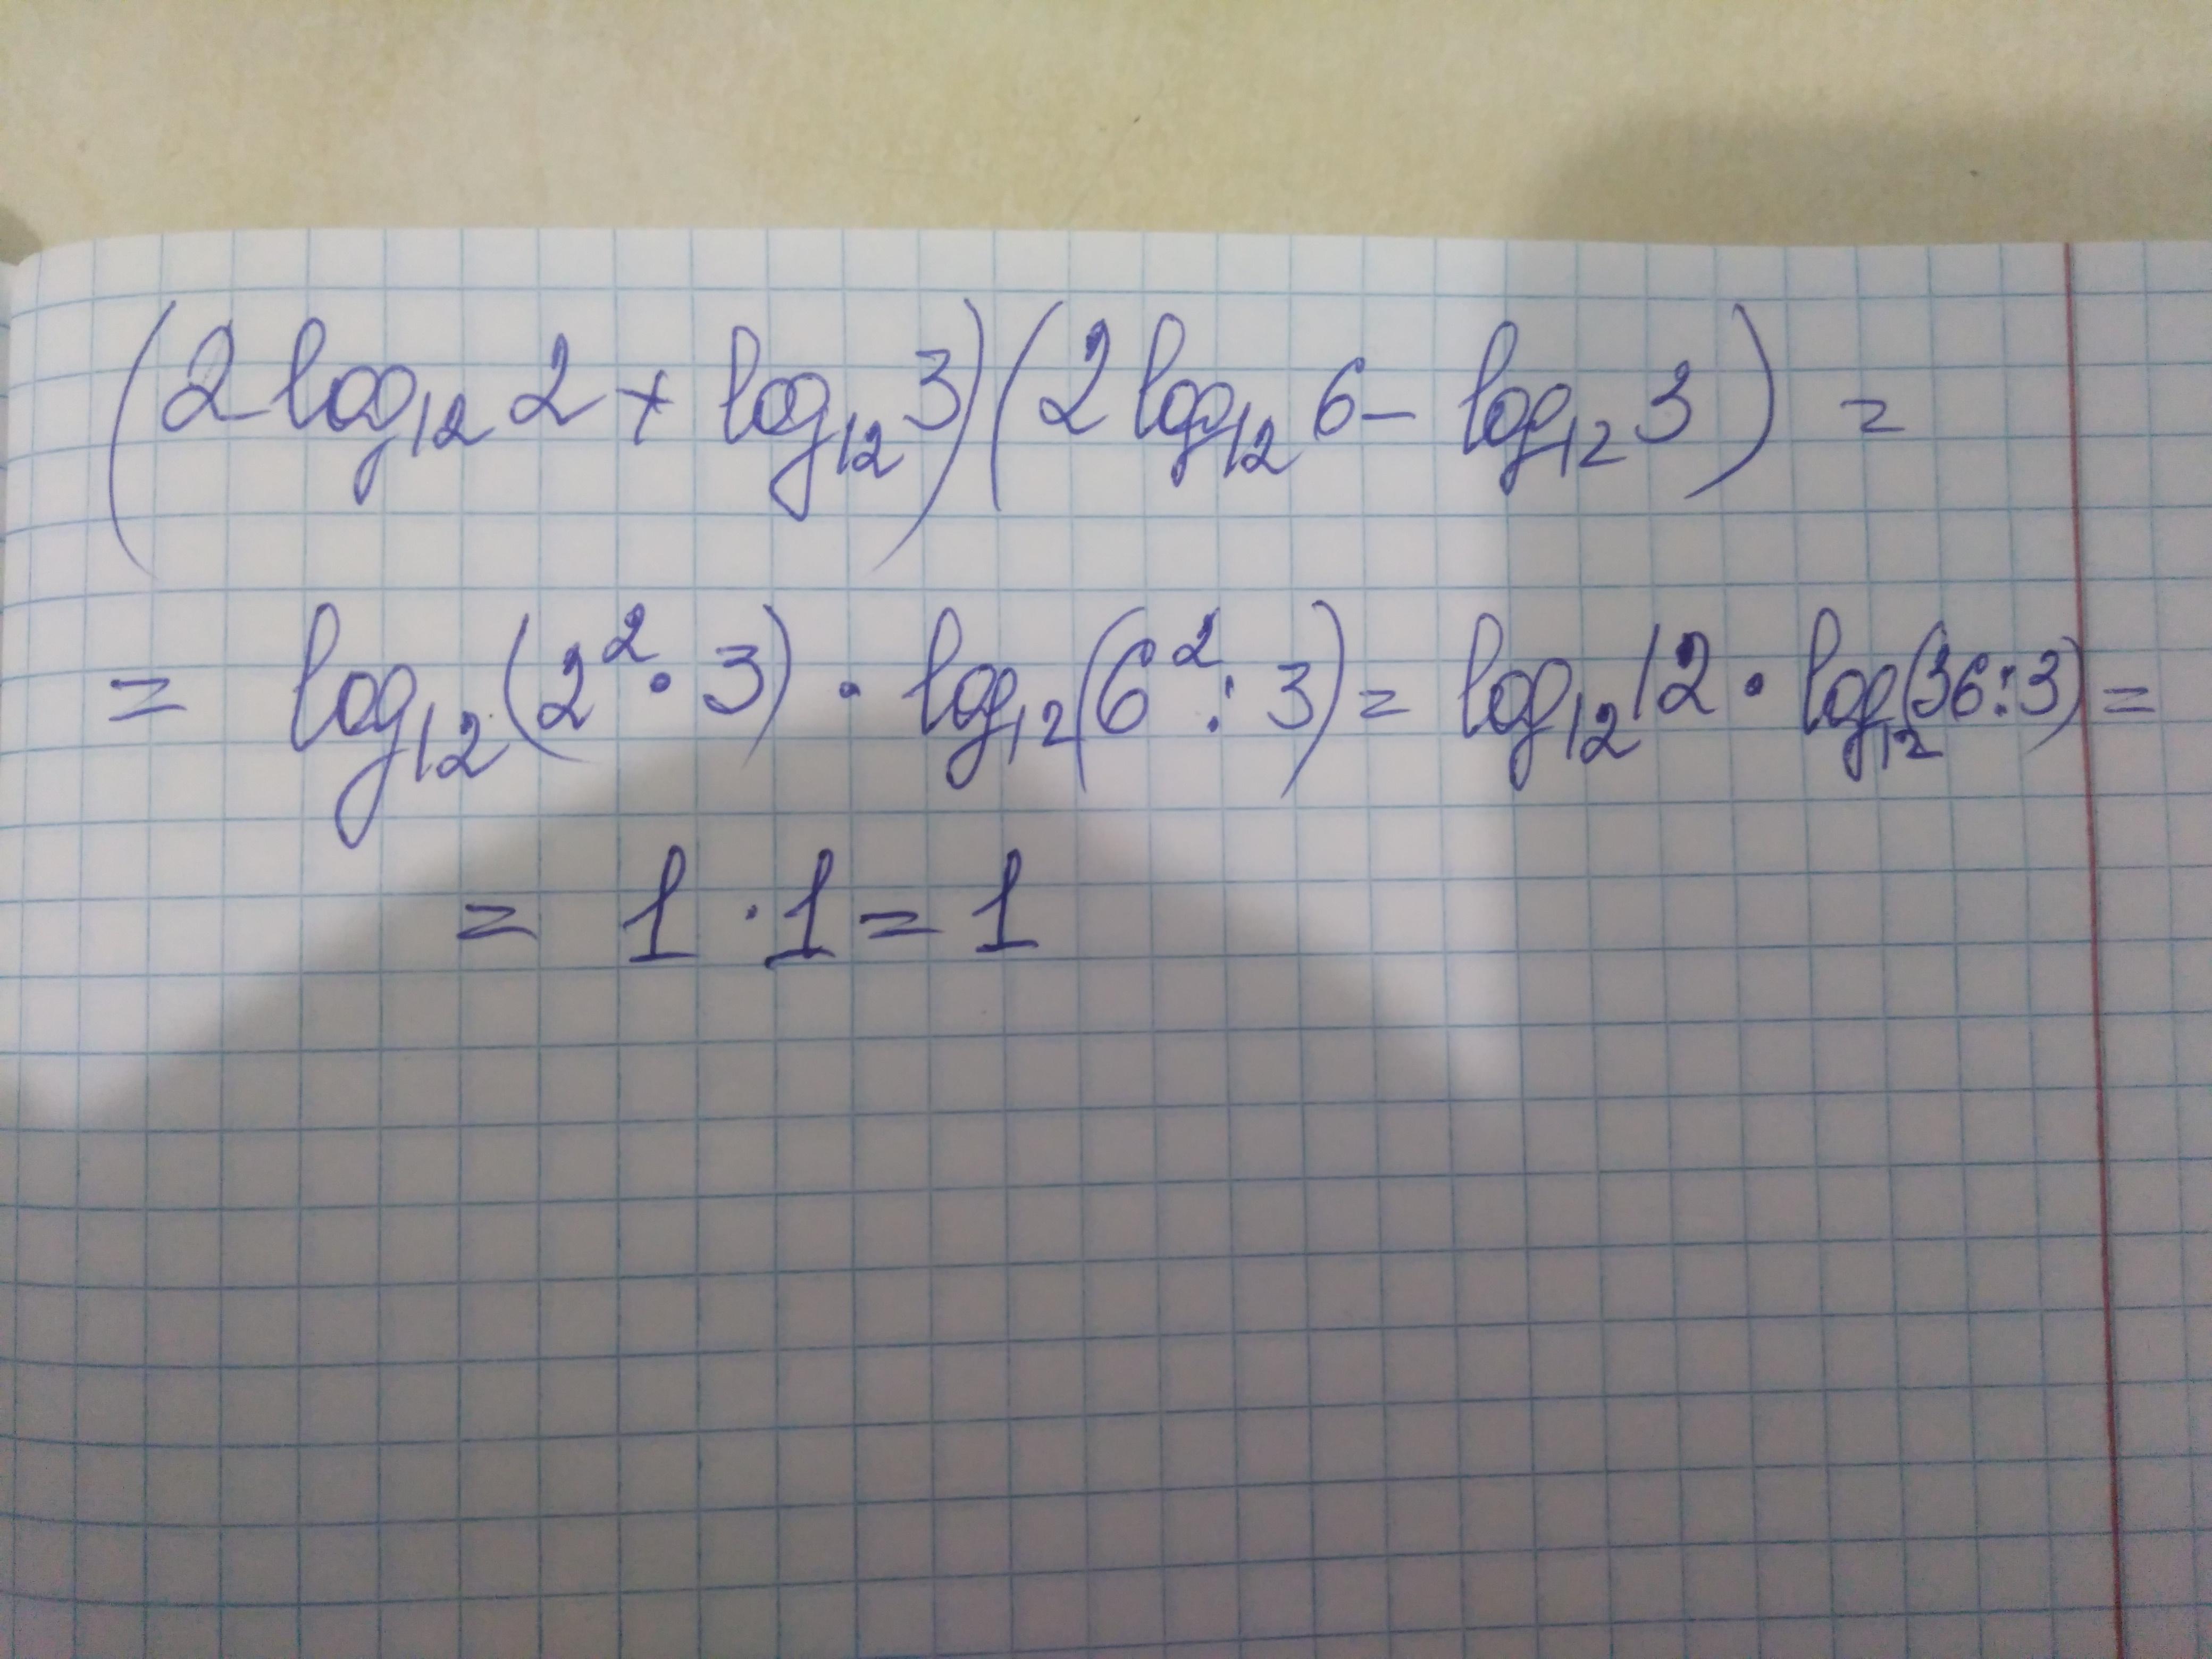 (2 log₁₂ 2 + log₁₂ 3)(2 log₁₂ 6 – log₁₂ 3) =
= log₁₂(2² · 3) · log₁₂(6² : 3) = log₁₂ 12 · log₁₂(36 : 3) =
= 1 · 1 = 1